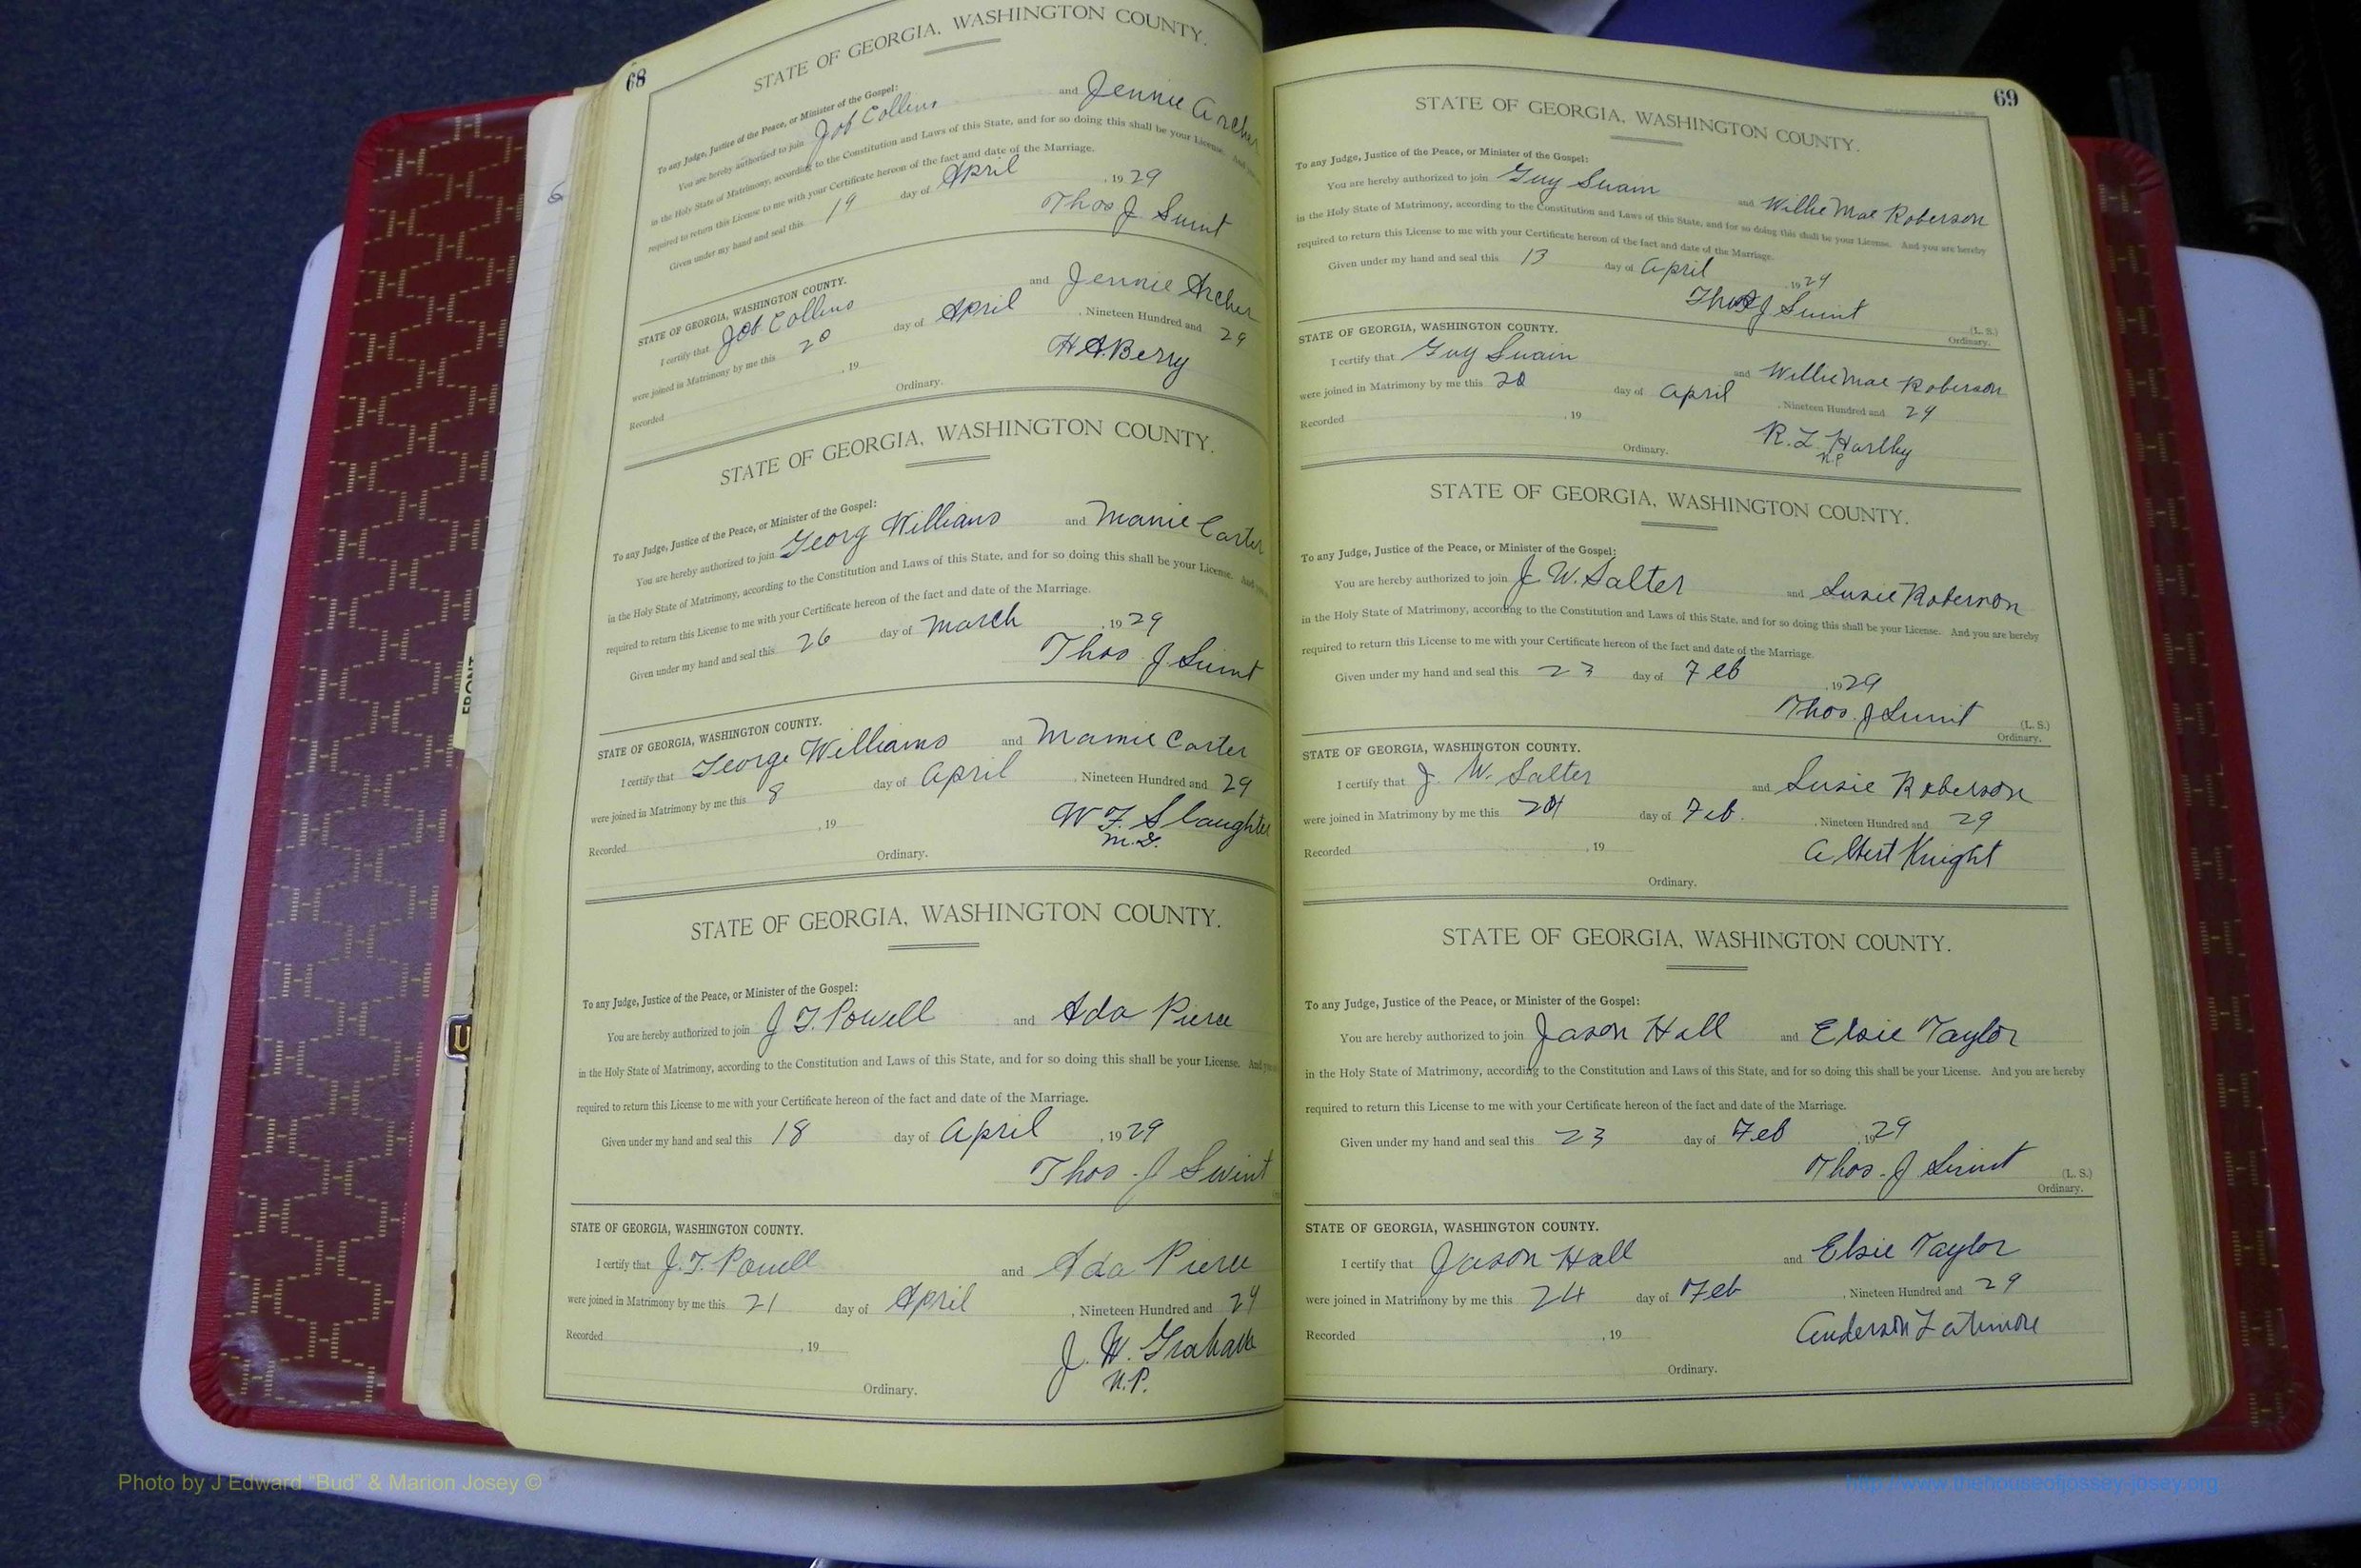 68
STATE OF GEORGIA, WASHINGTON COUNTY.
To any Judge, Justice of the Peace, or Minister of the Gospel:
You are hereby authorized to join Job Collins and Jennie Archer
in the Holy State of Matrimony, according to the Constitution and Laws of this State, and for so doing this shall be your License. And
required to return this License to me with your Certificate hereon of the fact and date of the Marriage.
Given under my hand and seal this 19 day of April , 19 29
Thos J Swint
STATE OF GEORGIA, WASHINGTON COUNTY.
I certify that Job Collins and Jennie Archer
were joined in Matrimony by me this 20 day of April , Nineteen Hundred and 29
Recorded , 19 H A Berry
Ordinary.
STATE OF GEORGIA, WASHINGTON COUNTY.
To any Judge, Justice of the Peace, or Minister of the Gospel:
You are hereby authorized to join Georg Williams and Mamie Carter
in the Holy State of Matrimony, according to the Constitution and Laws of this State, and for so doing this shall be your License. And
required to return this License to me with your Certificate hereon of the fact and date of the Marriage.
Given under my hand and seal this 26 day of March , 19 29
Thos. J Swint
STATE OF GEORGIA, WASHINGTON COUNTY.
I certify that George Williams and Mamie Carter
were joined in Matrimony by me this 8 day of April , Nineteen Hundred and 29
Recorded , 19 W F. Slaughter
M.G.
Ordinary.
STATE OF GEORGIA, WASHINGTON COUNTY.
To any Judge, Justice of the Peace, or Minister of the Gospel:
You are hereby authorized to join J T. Powell and Ada Pierce
in the Holy State of Matrimony, according to the Constitution and Laws of this State, and for so doing this shall be your License. And
required to return this License to me with your Certificate hereon of the fact and date of the Marriage.
Given under my hand and seal this 18 day of April , 19 29
Thos. J Swint
STATE OF GEORGIA, WASHINGTON COUNTY.
I certify that J. T. Powell and Ada Pierce
were joined in Matrimony by me this 21 day of April , Nineteen Hundred and 29
Recorded , 19 J. W. Graham
N.P.
Ordinary.
69
STATE OF GEORGIA, WASHINGTON COUNTY.
To any Judge, Justice of the Peace, or Minister of the Gospel:
You are hereby authorized to join Guy Swain and Willie Mae Roberson
in the Holy State of Matrimony, according to the Constitution and Laws of this State, and for so doing this shall be your License. And you are hereby
required to return this License to me with your Certificate hereon of the fact and date of the Marriage.
Given under my hand and seal this 13 day of April , 19 29
Thos J Swint (L. S.)
Ordinary.
STATE OF GEORGIA, WASHINGTON COUNTY.
I certify that Guy Swain and Willie Mae Roberson
were joined in Matrimony by me this 20 day of April , Nineteen Hundred and 29
Recorded , 19 R. L. Hartley
N.P
Ordinary.
STATE OF GEORGIA, WASHINGTON COUNTY.
To any Judge, Justice of the Peace, or Minister of the Gospel:
You are hereby authorized to join J. W. Salter and Susie Roberson
in the Holy State of Matrimony, according to the Constitution and Laws of this State, and for so doing this shall be your License. And you are hereby
required to return this License to me with your Certificate hereon of the fact and date of the Marriage.
Given under my hand and seal this 23 day of Feb , 19 29
Thos. J Swint (L. S.)
Ordinary.
STATE OF GEORGIA, WASHINGTON COUNTY.
I certify that J. W. Salter and Susie Roberson
were joined in Matrimony by me this 24 day of Feb. , Nineteen Hundred and 29
Recorded , 19 Albert Knight
Ordinary.
STATE OF GEORGIA, WASHINGTON COUNTY.
To any Judge, Justice of the Peace, or Minister of the Gospel:
You are hereby authorized to join Jason Hall and Elsie Taylor
in the Holy State of Matrimony, according to the Constitution and Laws of this State, and for so doing this shall be your License. And you are hereby
required to return this License to me with your Certificate hereon of the fact and date of the Marriage.
Given under my hand and seal this 23 day of Feb , 19 29
Thos. J Swint (L. S.)
Ordinary.
STATE OF GEORGIA, WASHINGTON COUNTY.
I certify that Jason Hall and Elsie Taylor
were joined in Matrimony by me this 24 day of Feb , Nineteen Hundred and 29
Recorded , 19 Anderson Latimore
Ordinary.
FRONT
Photo by J Edward "Bud" & Marion Josey ©
http://www.thehouseofjossey-josey.org